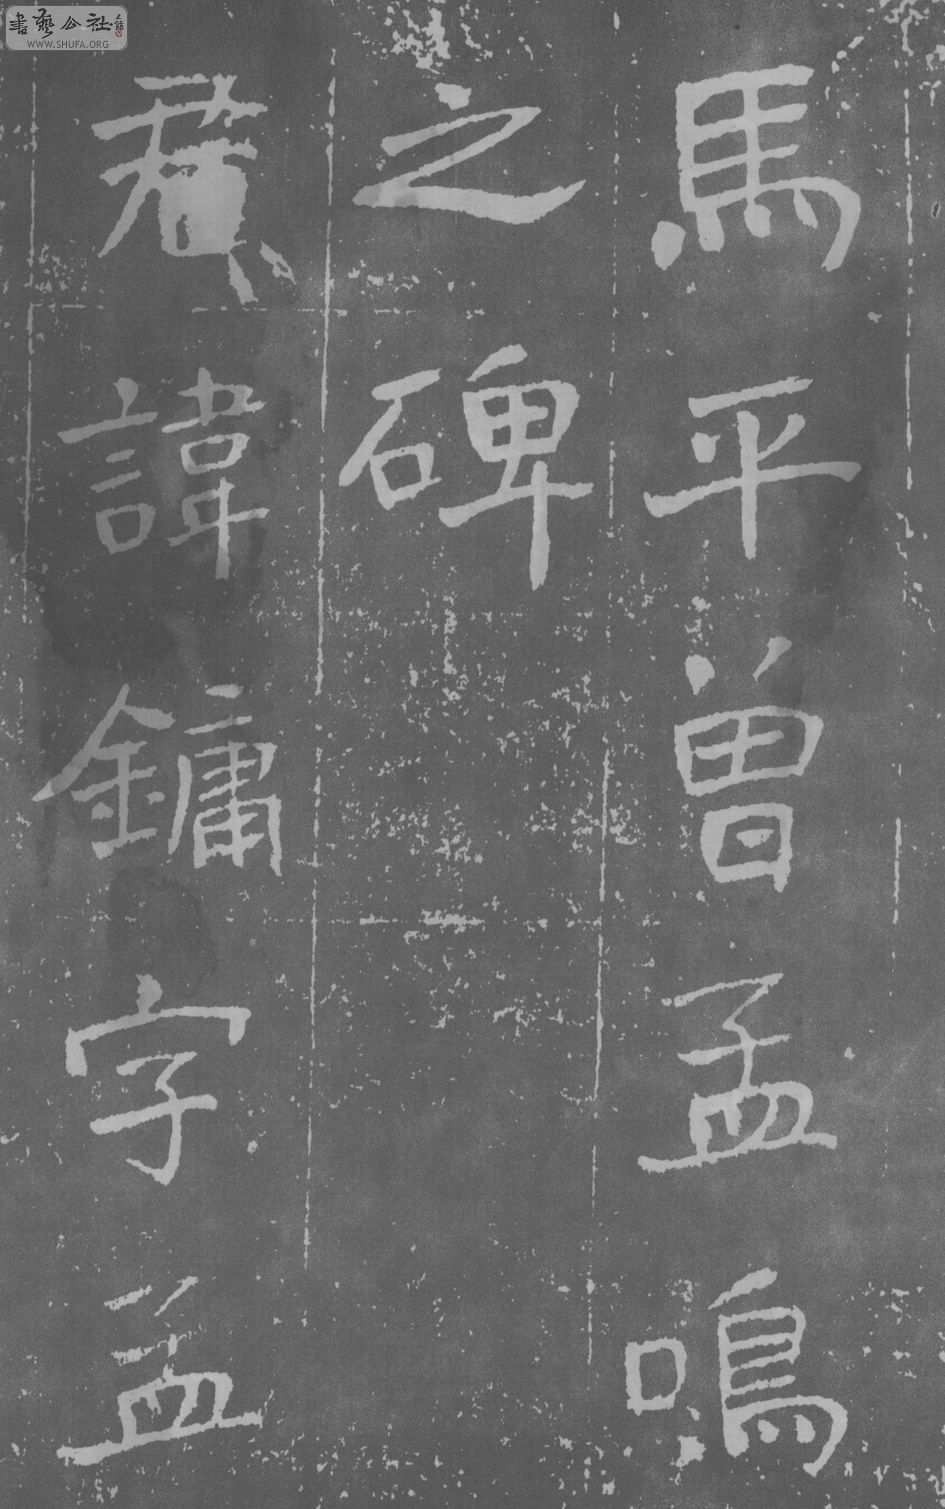 馬平曾孟鳴
之碑
君諱鏞字孟
書藝公社
WWW.SHUFA.ORG